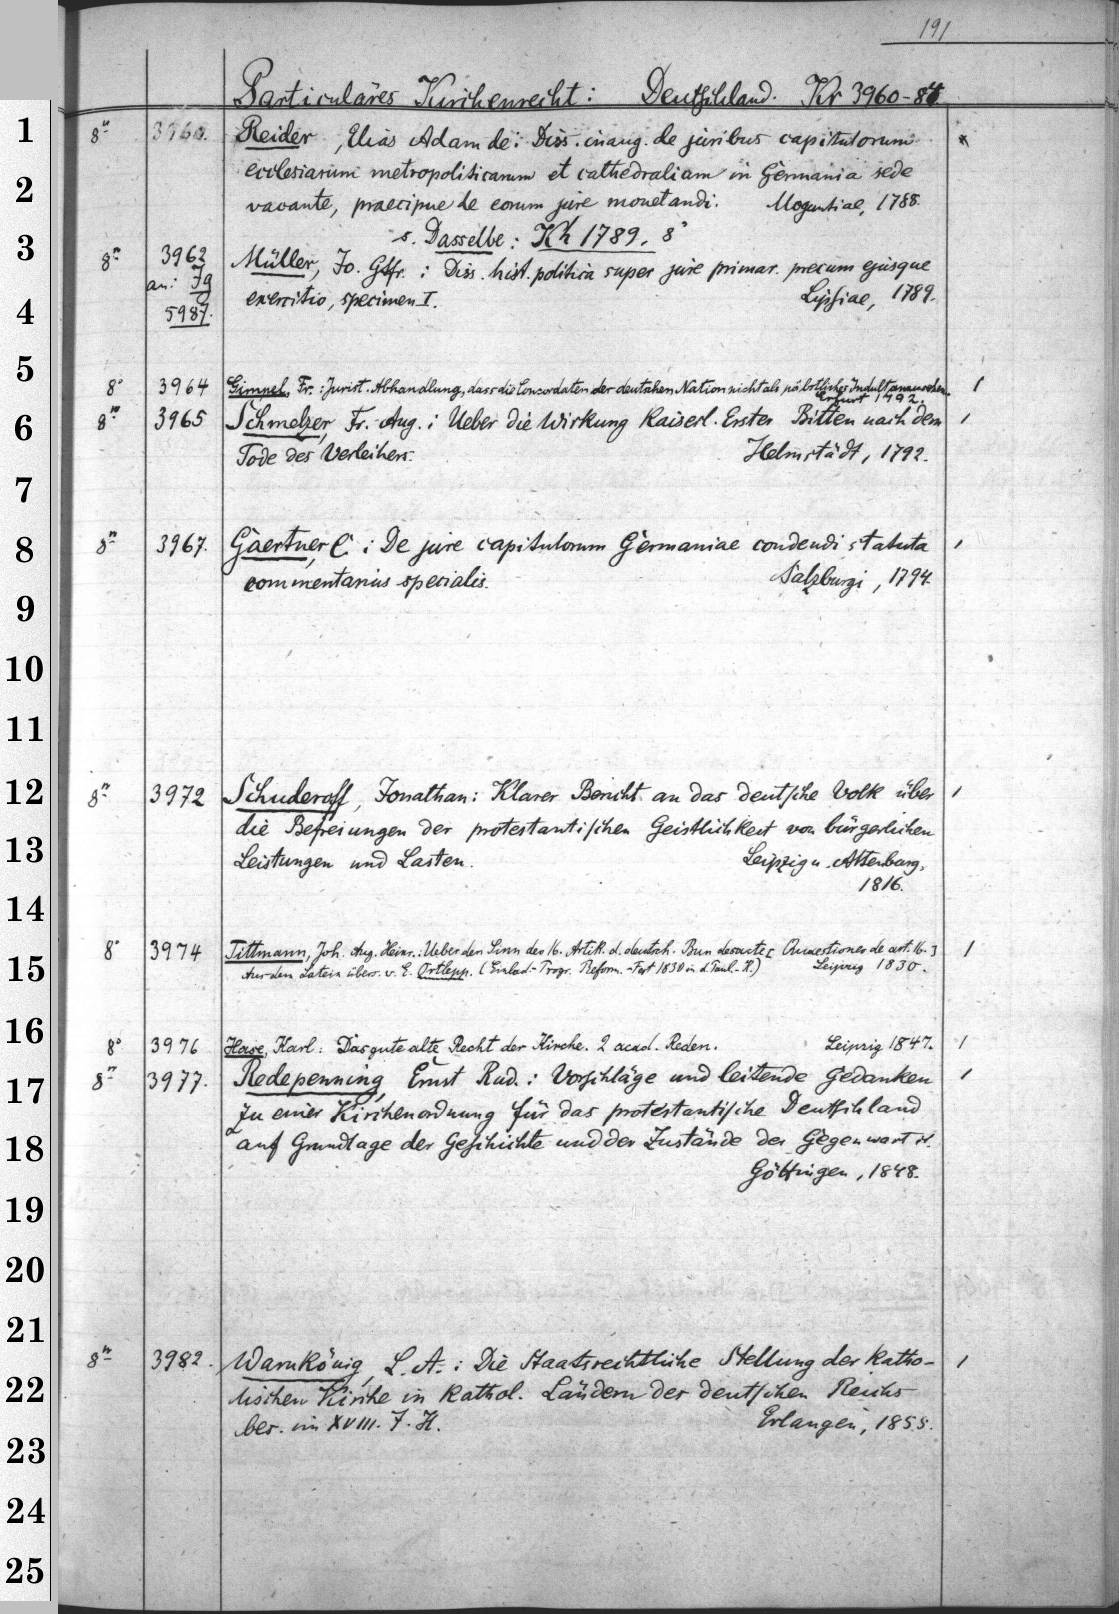 191
Particuläres Kirchenrecht: Deutschland. Kr 3960-84
1 8° 3960. Reider, Elias Adam de: Diss. inaug. de juribus capitulorum x
ecclesiarum metropoliticarum et cathedralium in Germania sede
2 vacante, praecipue de eorum jure monetandi. Moguntiae, 1788.
s. Dasselbe: Kh 1789. 8°
3 8° 3962 Müller, Jo. Gtfr.: Diss. hist. politica super jure primar. precum ejusque
an: Jg
4 5987. exercitio, specimen I. Lipsiae, 1789.
5 8° 3964 Gimpel, Fr.: Jurist. Abhandlung, dass die Concordaten der deutschen Nation nicht als päbstliches Indult anzusehen. 1
Erfurt 1792.
6 8° 3965 Schmelzer, Fr. Aug.: Ueber die Wirkung Kaiserl. Erster Bitten nach dem 1
Tode des Verleihers. Helmstädt, 1792.
7
8 8° 3967. Gaertner, C: De jure capitulorum Germaniae condendi statuta 1
commentarius specialis. Salzburgi, 1794.
9
10
11
12 8° 3972 Schuderoff, Jonathan: Klarer Bericht an das deutsche Volk über 1
die Befreiungen der protestantischen Geistlichkeit von bürgerlichen
13 Leistungen und Lasten. Leipzig u. Altenburg,
1816.
14
8° 3974 Tittmann, Joh. Aug. Heinr.: Ueber den Sinn des 16. Artik. d. deutsch. Bundesacte [Quaestiones de art. 16.] 1
15 Aus dem Latein übers. v. E. Ortlepp. (Einlad.-Progr. Reform.-Fest 1830 in d. Paul.-K.) Leipzig 1830.
16 8° 3976 Hase, Karl: Das gute alte Recht der Kirche. 2 acad. Reden. Leipzig 1847. 1
17 8° 3977. Redepenning, Ernst Rud.: Vorschläge und leitende Gedanken 1
zu einer Kirchenordnung für das protestantische Deutschland
18 auf Grundlage der Geschichte und der Zustände der Gegenwart
Göttingen, 1848.
19
20
21
8° 3982. Warnkönig, L. A.: Die Staatsrechtliche Stellung der katho- 1
22 lischen Kirche in kathol. Ländern des deutschen Reichs
bes. im XVIII. J. H. Erlangen, 1855.
23
24
25